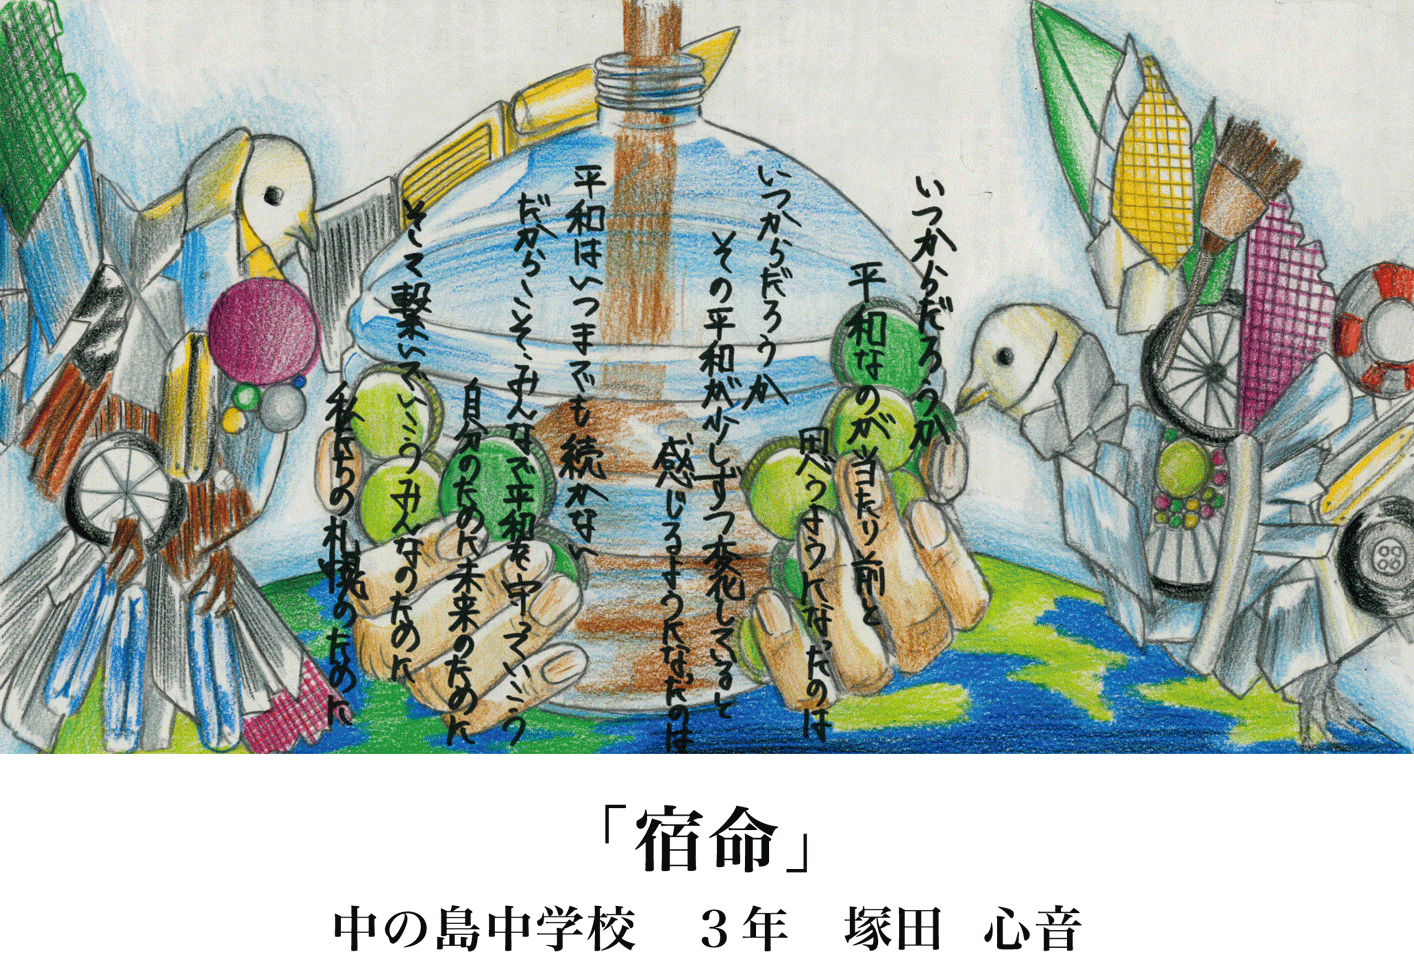 いつからだろうか
平和なのが当たり前と
思うようになったのは
いつからだろうか
その平和が少しずつ変化していると
感じるようになったのは
平和はいつまでも続かない
だからこそ、みんなで平和を守っていこう
自分のために未来のために
そして繋いでいこうみんなのために
私たちの札幌のために
「宿命」
中の島中学校　３年　塚田　心音